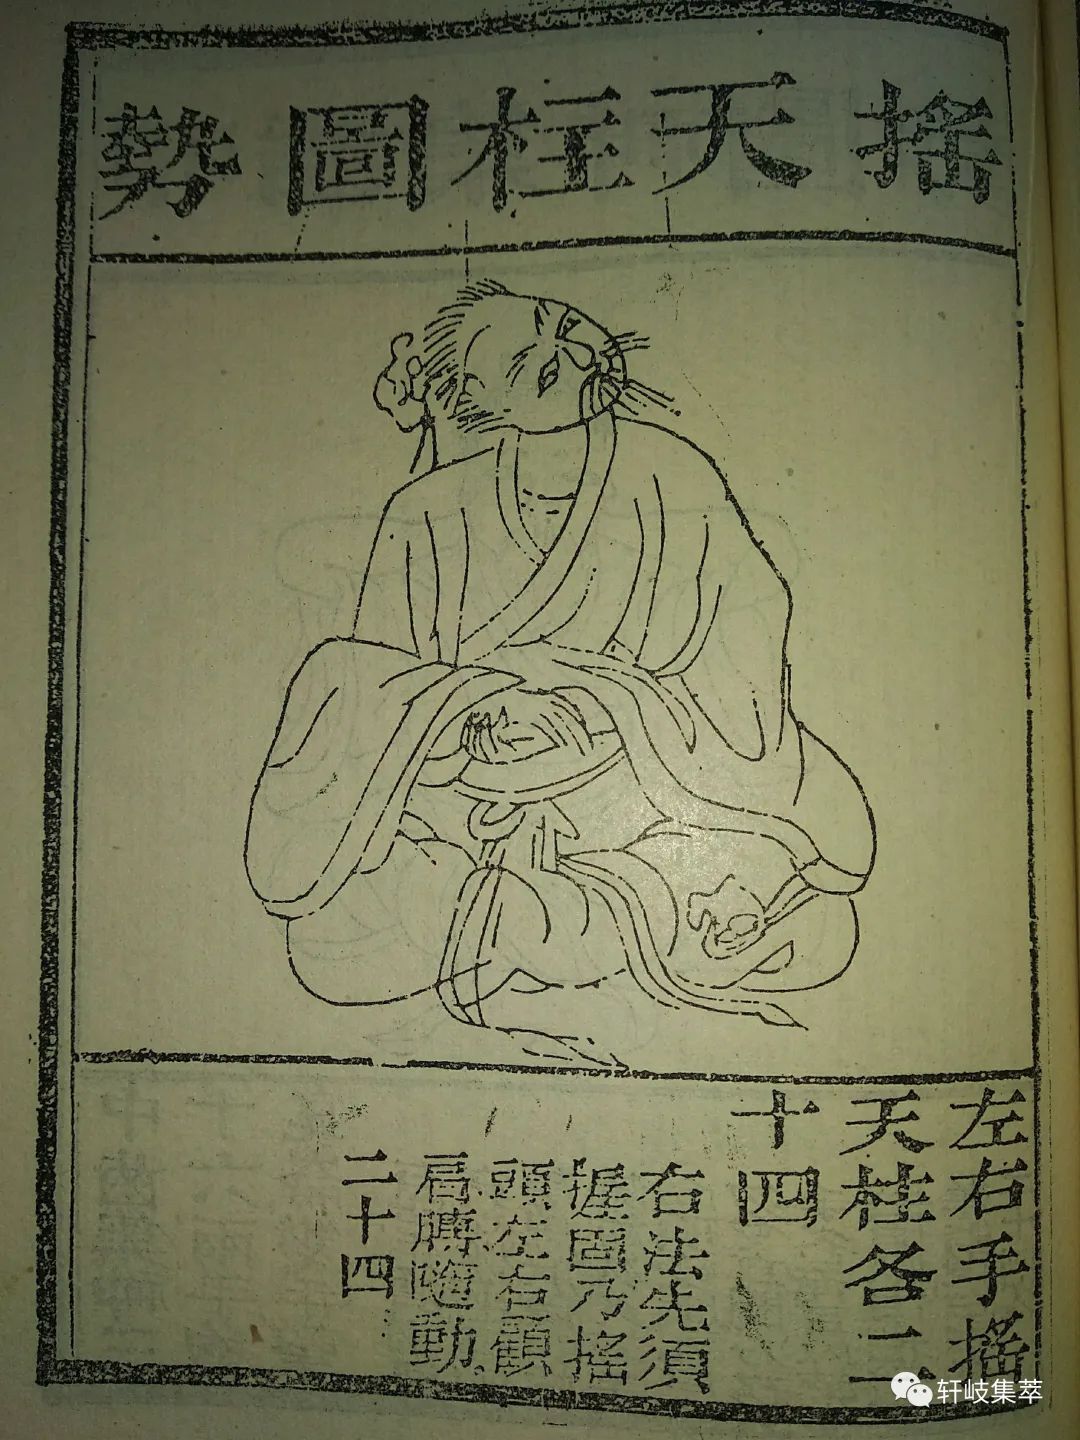 搖天柱圖勢
左右手搖
天柱各二
十四
右法先須
握固乃搖
頭左右顧
肩膊隨動
二十四
轩岐集萃